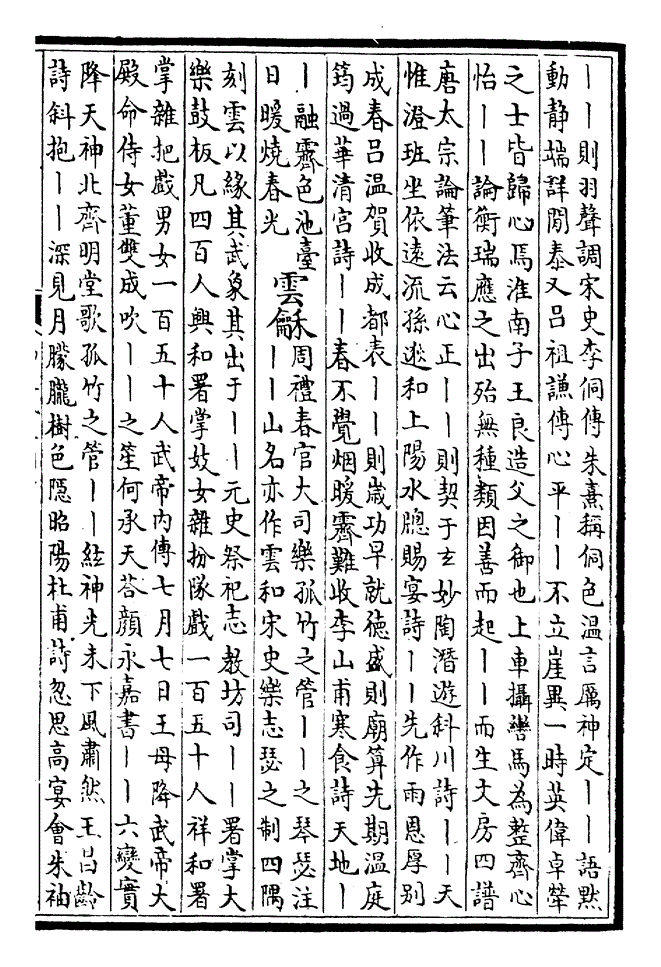 丨丨則羽聲調宋史李侗傳朱熹稱侗色溫言厲神定丨丨語黙
動静端詳閒泰又呂祖謙傳心平丨丨不立崖異一時英偉卓犖
之士皆歸心焉淮南子王良造父之御也上車攝轡馬為整齊心
怡丨丨論衡瑞應之出殆無種類因善而起丨丨而生文房四譜
唐太宗論筆法云心正丨丨則契于玄妙陶潛遊斜川詩丨丨天
惟澄班坐依遠流孫逖和上陽水牎賜宴詩丨丨先作雨恩厚别
成春呂溫賀收成都表丨丨則嵗功早就徳盛則廟算先期溫庭
筠過華清宮詩丨丨春不覺烟暖霽難收李山甫寒食詩天地丨
丨融霽色池臺
日暖燒春光
雲龢
周禮春官大司樂孤竹之管丨丨之琴瑟注
丨丨山名亦作雲和宋史樂志瑟之制四隅
刻雲以緣其武象其出于丨丨元史祭祀志教坊司丨丨署掌大
樂鼓板凡四百人興和署掌妓女雜扮隊戲一百五十人祥和署
掌雜把戲男女一百五十人武帝内傳七月七日王母降武帝大
殿命侍女董雙成吹丨丨之笙何承天荅顔永嘉書丨丨六變實
降天神北齊明堂歌孤竹之管丨丨絃神光未下風肅然王昌齡
詩斜抱丨丨深見月朦朧樹色隱昭陽杜甫詩忽思高宴會朱袖